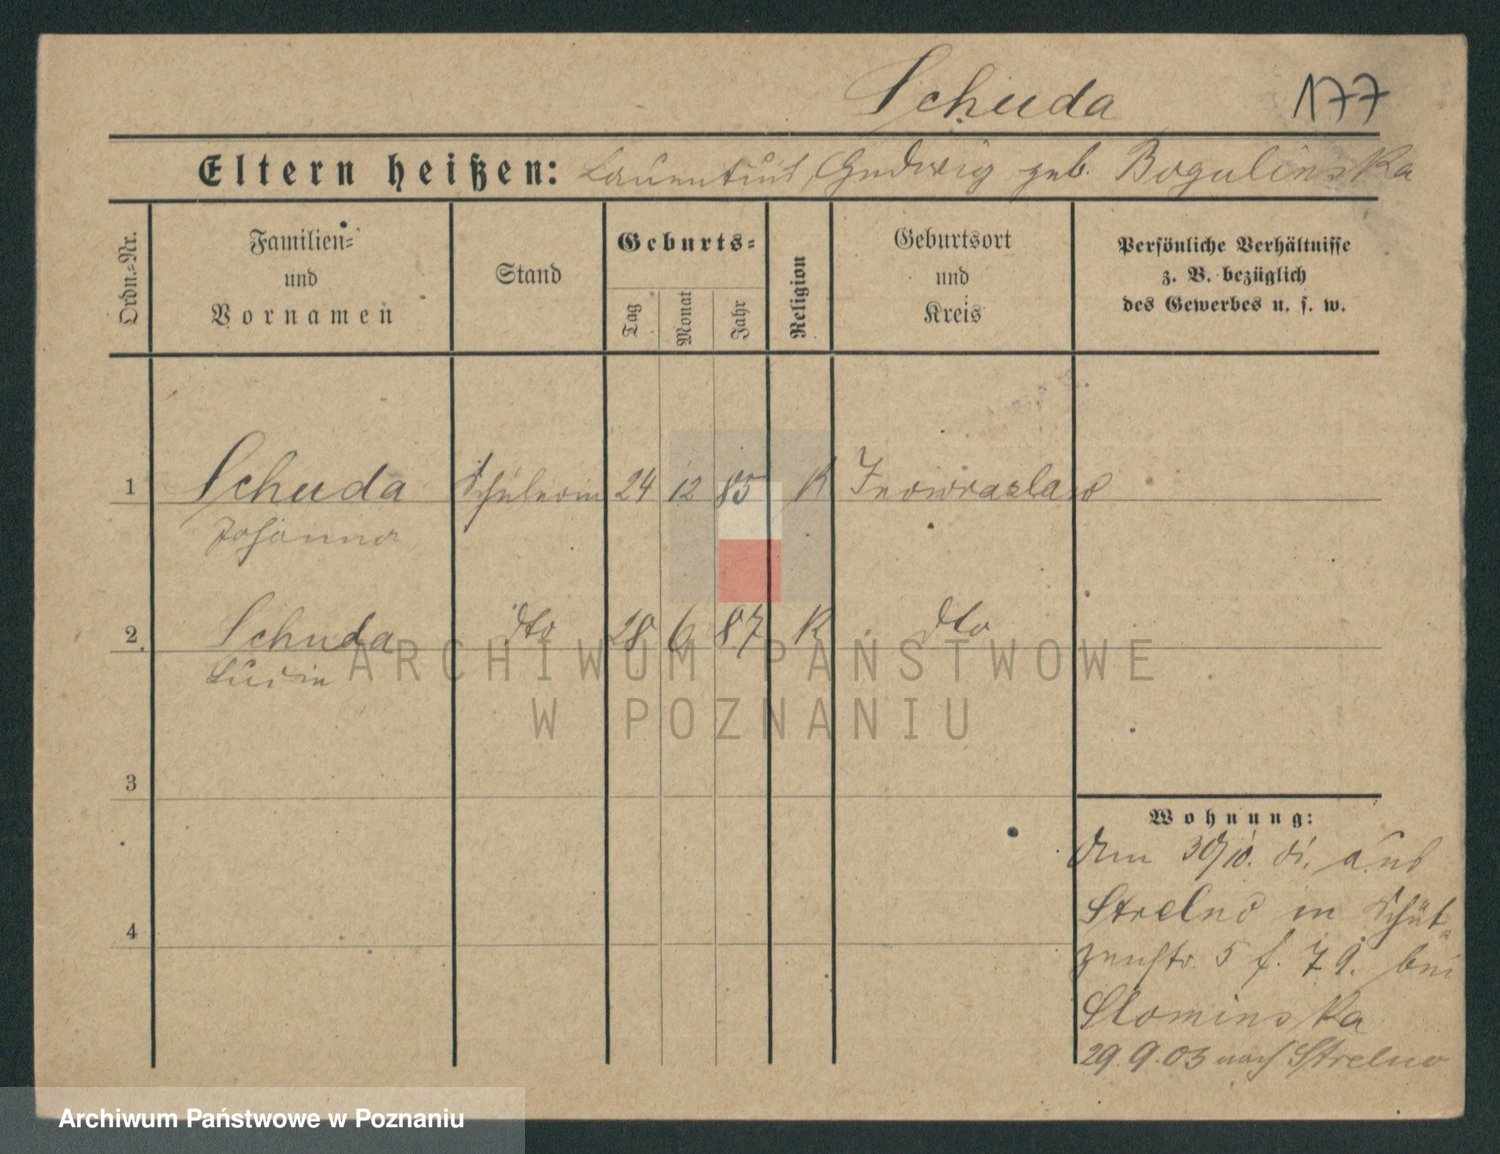 Schuda 177
Eltern heißen: Laurentius, Hedwig geb. Bogulinska
Ordn.-Nr.
Familien-
und
Vornamen
Stand
Geburts-
Tag
Monat
Jahr
Religion
Geburtsort
und
Kreis
Persönliche Verhältnisse
z. B. bezüglich
des Gewerbes u. s. w.
1 Schuda Schülerin 24 12 85 K Inowrazlaw
Johanna
2. Schuda dto 28 6 87 K dto
ARCHIWUM PAŃSTWOWE
W POZNANIU
3
4
Wohnung:
Am 30/10. aus
Strelno in Schüt-
zenstr. 5 bei
Slominska
29.9.03 nach Strelno
Archiwum Państwowe w Poznaniu